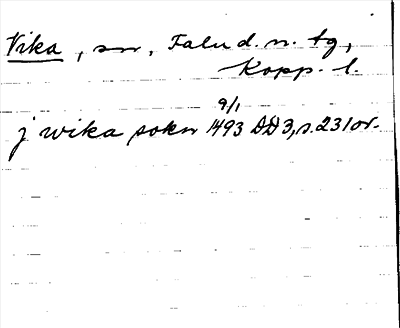 Vika, sn, Falu d. n. tg,
Kopp. l.
9/1
j wika sokn 1493 DD3, s. 231 or.